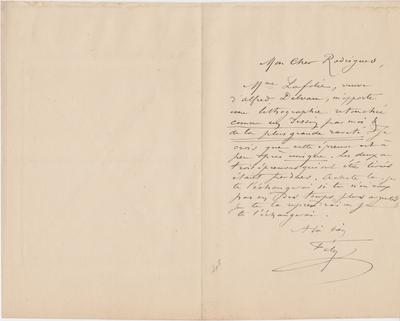 Mon Cher Rodrigues,
Mme Lafolie, veuve
d'Alfred Delvau, m'apporte
une lithographie retouchée
comme un dessin par moi &
de la plus grande rareté. Je
crois que cette épreuve est à
peu près unique. Les deux ou
trois épreuves qui ont été tirées
étant perdues. Achète la. je
te l'échangerai si tu n'en veux
pas en des temps plus
je te la reprendrai en
te l'échangeant.
A toi